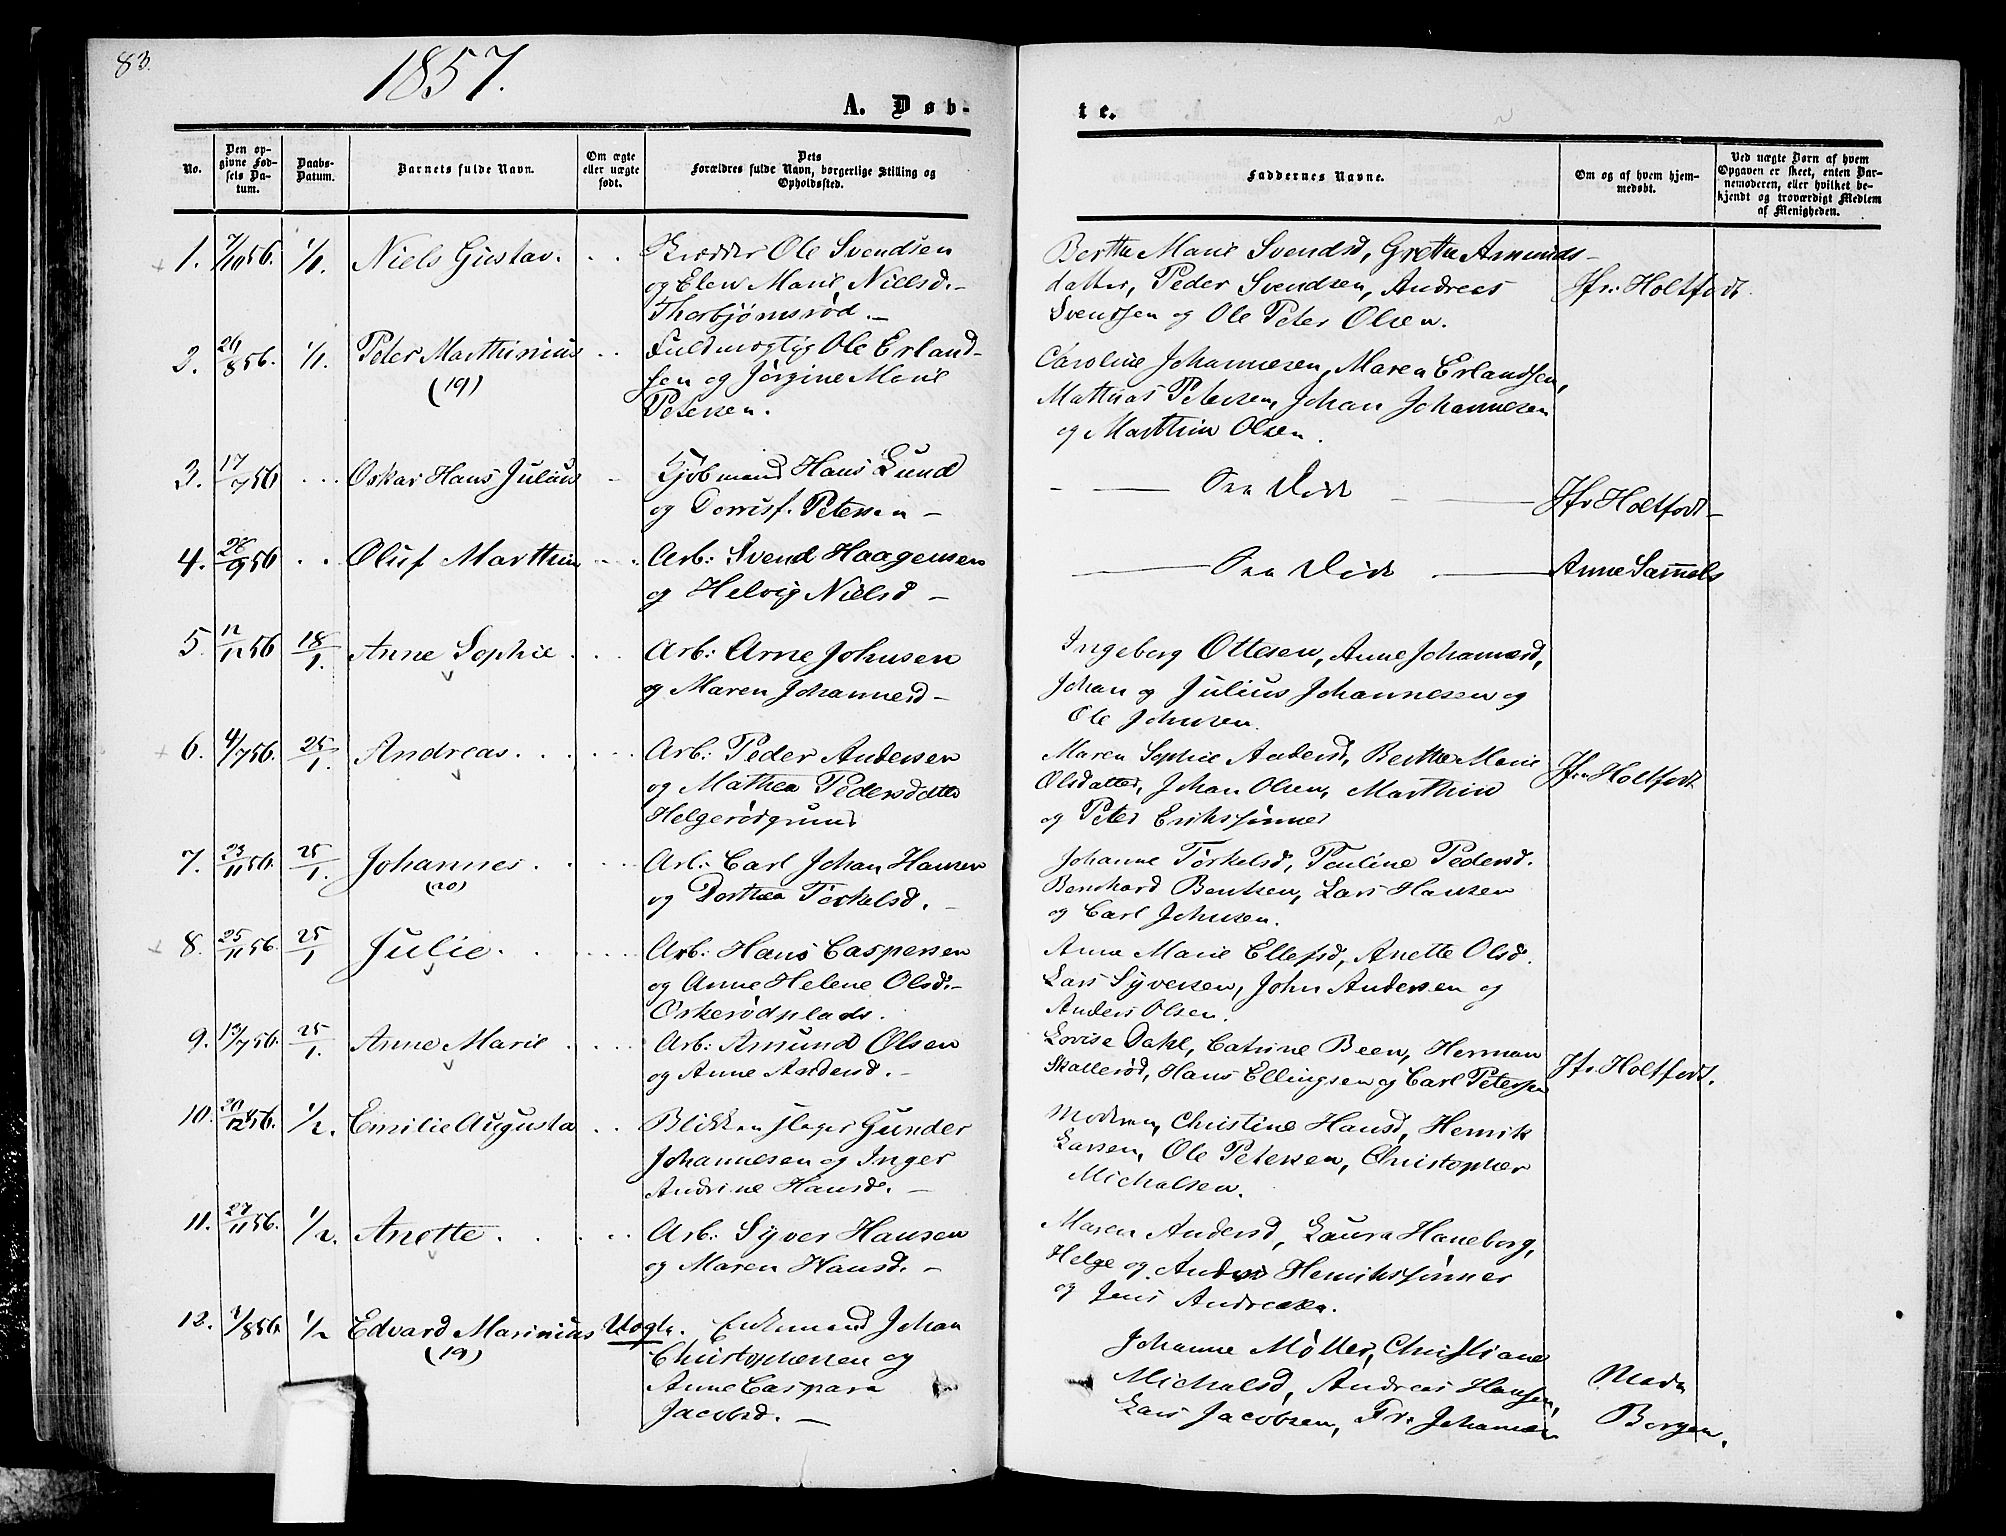 83.
1857.
A. Døb-
te.
No.
Den op-
givne Fød-
sels Da-
tum.
Daabs-
Datum.
Barnets fulde Navn.
Om ægte
eller uægte
født.
Dets
Forældres fulde Navn, borgerlige Stilling og
Opholdssted.
Faddernes Navne.
Om og af hvem hjem-
medøbt.
Ved uægte Børn af hvem
Opgaven er skeet, enten Bar-
nemoderen, eller hvilket be-
kjendt og troværdigt Medlem
af Menigheden.
1. 7/10 56. 1/1. Niels Gustav. . . Kræmmer Ole Svendsen
og Elen Marie Nielsd.
Thorbjørnsrød. —
Berthe Marie Svendsd, Grethe Asmunds-
datter, Peder Svendsen, Andreas
Svendsen og Ole Peter Olsen.
Jfr: Holtfodt.
2. 26/8 56. 1/1. Peter Marthinius . . Fuldmægtig Ole Erland-
(19) sen og Jørgine Marie
Petersen.
Caroline Johannesen, Maren Erlandsen,
Mathias Petersen, Johan Johannesen
og Marthin Olsen.
3. 17/7 56 . . . Oskar Hans Julius - Kjøbmand Hans Lund
og Dorris f. Petersen —
— Saa Døbt —
Jfr Holtfodt —
4. 28/9 56 . . Oluf Marthin . . . Arb: Svend Haagensen
og Helvig Nielsd —
— Saa Døbt —
Anne Samuels
5. 12/11 56 18/1. Anne Sophie . . . Arb: Arne Johnsen
og Maren Johannesd —
Ingeborg Ottesen, Anne Johannesd,
Johan og Julius Johannesen og
Ole Johnsen.
6. 4/7 56. 25/1. Andreas. . . . Arb: Peder Andersen
og Mathea Pedersdatter
Helgerødgrund
Maren Sophie Andersd, Berthe Marie
Olsdatter, Johan Olsen, Marthin
og Peter Erikssønner
Jfr Holtfodt
7. 23/11 56. 25/1. Johannes. . . . Arb: Carl Johan Hansen
(20) og Dorthea Torkelsd. —
Johanne Torkelsd, Pauline Pedersd.
Bernhard Bentsen, Lars Hansen
og Carl Johnsen.
8. 25/11 56. 25/1 Julie. . . . Arb: Hans Caspersen
og Anne Helene Olsd. —
Oskerødplads.
Anne Marie Ellefsd, Anette Olsd.
Lars Syversen, John Andersen og
Anders Olsen.
9. 13/7 56. 25/1. Anne Marie . . . Arb: Amund Olsen
og Anne Andersd. —
Lovise Dahl, Catrine Been, Herman
Skallerød, Hans Ellingsen og Carl Petersen
Jfr Holtfodt.
10. 20/12 56. 1/2. Emilie Augusta . . Blikkenslager Gunder
Johannesen og Inger
Andrine Hansd. —
Moderen, Christine Hansd, Henrik
Larsen, Ole Petersen, Christopher
Michalsen.
11. 27/11 56. 1/2. Anette . . . . Arb: Syver Hansen
og Maren Hansd. —
Maren Andersd, Laura Haneborg,
Helge og Anders Henrikssønner
og Jens Andreasen.
12. 1/8 56. 1/2 Edvard Marinius Uægte. Enkemand Johan
(19) Christophersen og
Anne Caspara
Jacobsd. —
Johanne Møller, Christiane
Michalsd, Andreas Hansen,
Lars Jacobsen, Fr. Johannes
Mada
Borgen.